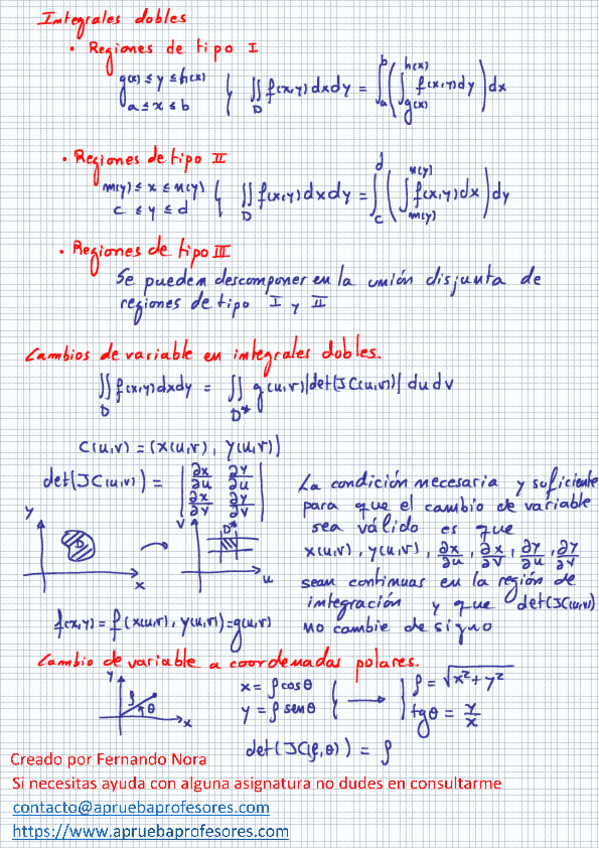 Integrales dobles
• Regiones de tipo I
g(x) ≤ y ≤ h(x)
a ≤ x ≤ b
∬_D f(x,y) dxdy = ∫_a^b ( ∫_{g(x)}^{h(x)} f(x,y) dy ) dx
• Regiones de tipo II
m(y) ≤ x ≤ n(y)
c ≤ y ≤ d
∬_D f(x,y) dxdy = ∫_c^d ( ∫_{m(y)}^{n(y)} f(x,y) dx ) dy
• Regiones de tipo III
Se pueden descomponer en la unión disjunta de
regiones de tipo I y II
Cambios de variable en integrales dobles.
∬_D f(x,y) dxdy = ∬_{D*} g(u,v) |det(JC(u,v))| du dv
C(u,v) = (x(u,v), y(u,v))
det(JC(u,v)) = | ∂x/∂u ∂y/∂u |
| ∂x/∂v ∂y/∂v |
La condición necesaria y suficiente
para que el cambio de variable
sea válido es que
x(u,v), y(u,v), ∂x/∂u, ∂x/∂v, ∂y/∂u, ∂y/∂v
sean continuas en la región de
integración y que det(JC(u,v))
no cambie de signo
y
D
x
v
D*
u
f(x,y) = f(x(u,v), y(u,v)) = g(u,v)
Cambio de variable a coordenadas polares.
y
ρ
θ
x
x = ρ cos θ
y = ρ sen θ
ρ = √(x² + y²)
tg θ = y/x
det(JC(ρ,θ)) = ρ
Creado por Fernando Nora
Si necesitas ayuda con alguna asignatura no dudes en consultarme
contacto@apruebaprofesores.com
https://www.apruebaprofesores.com